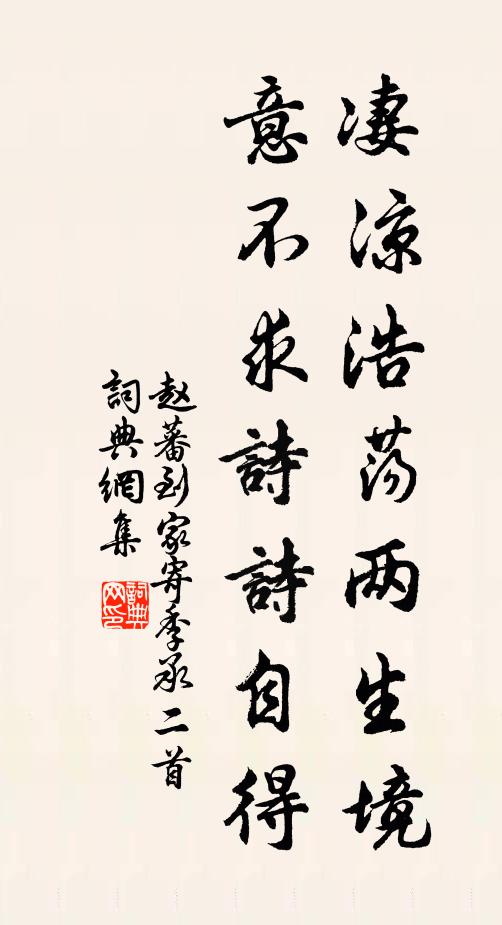 凄凉浩荡两生境
意不求詩詩自得
赵蕃到家寄季承二首
詞典網集
詞典
网印